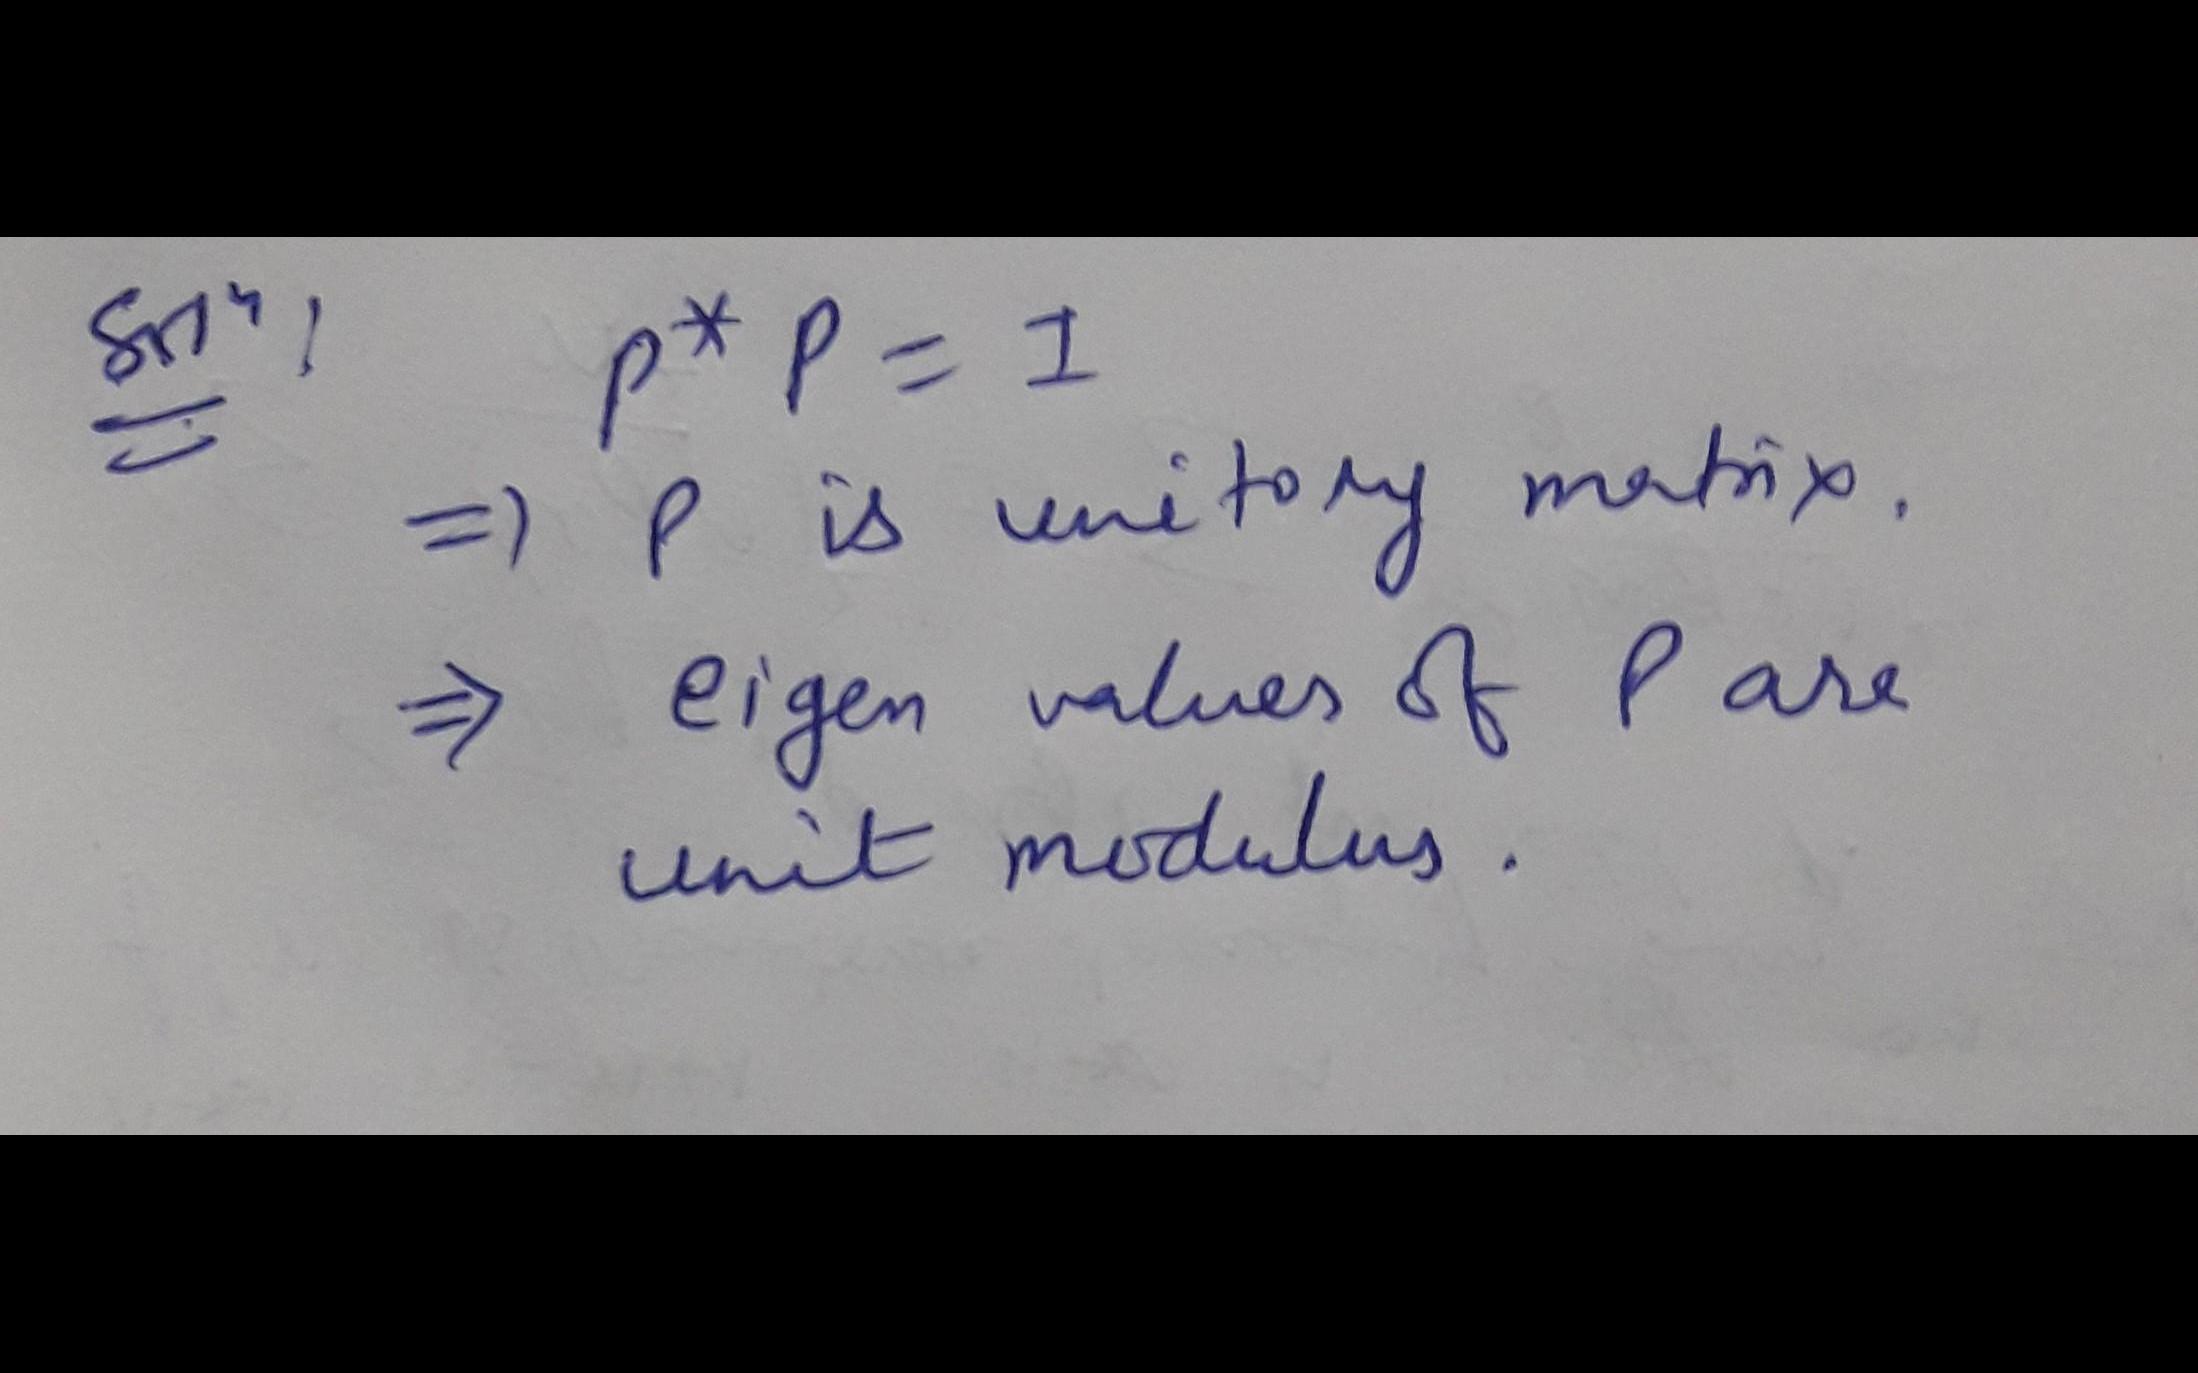 Solⁿ: P* P = I
=> P is unitory matrix.
=> eigen values of P are
unit modulus.